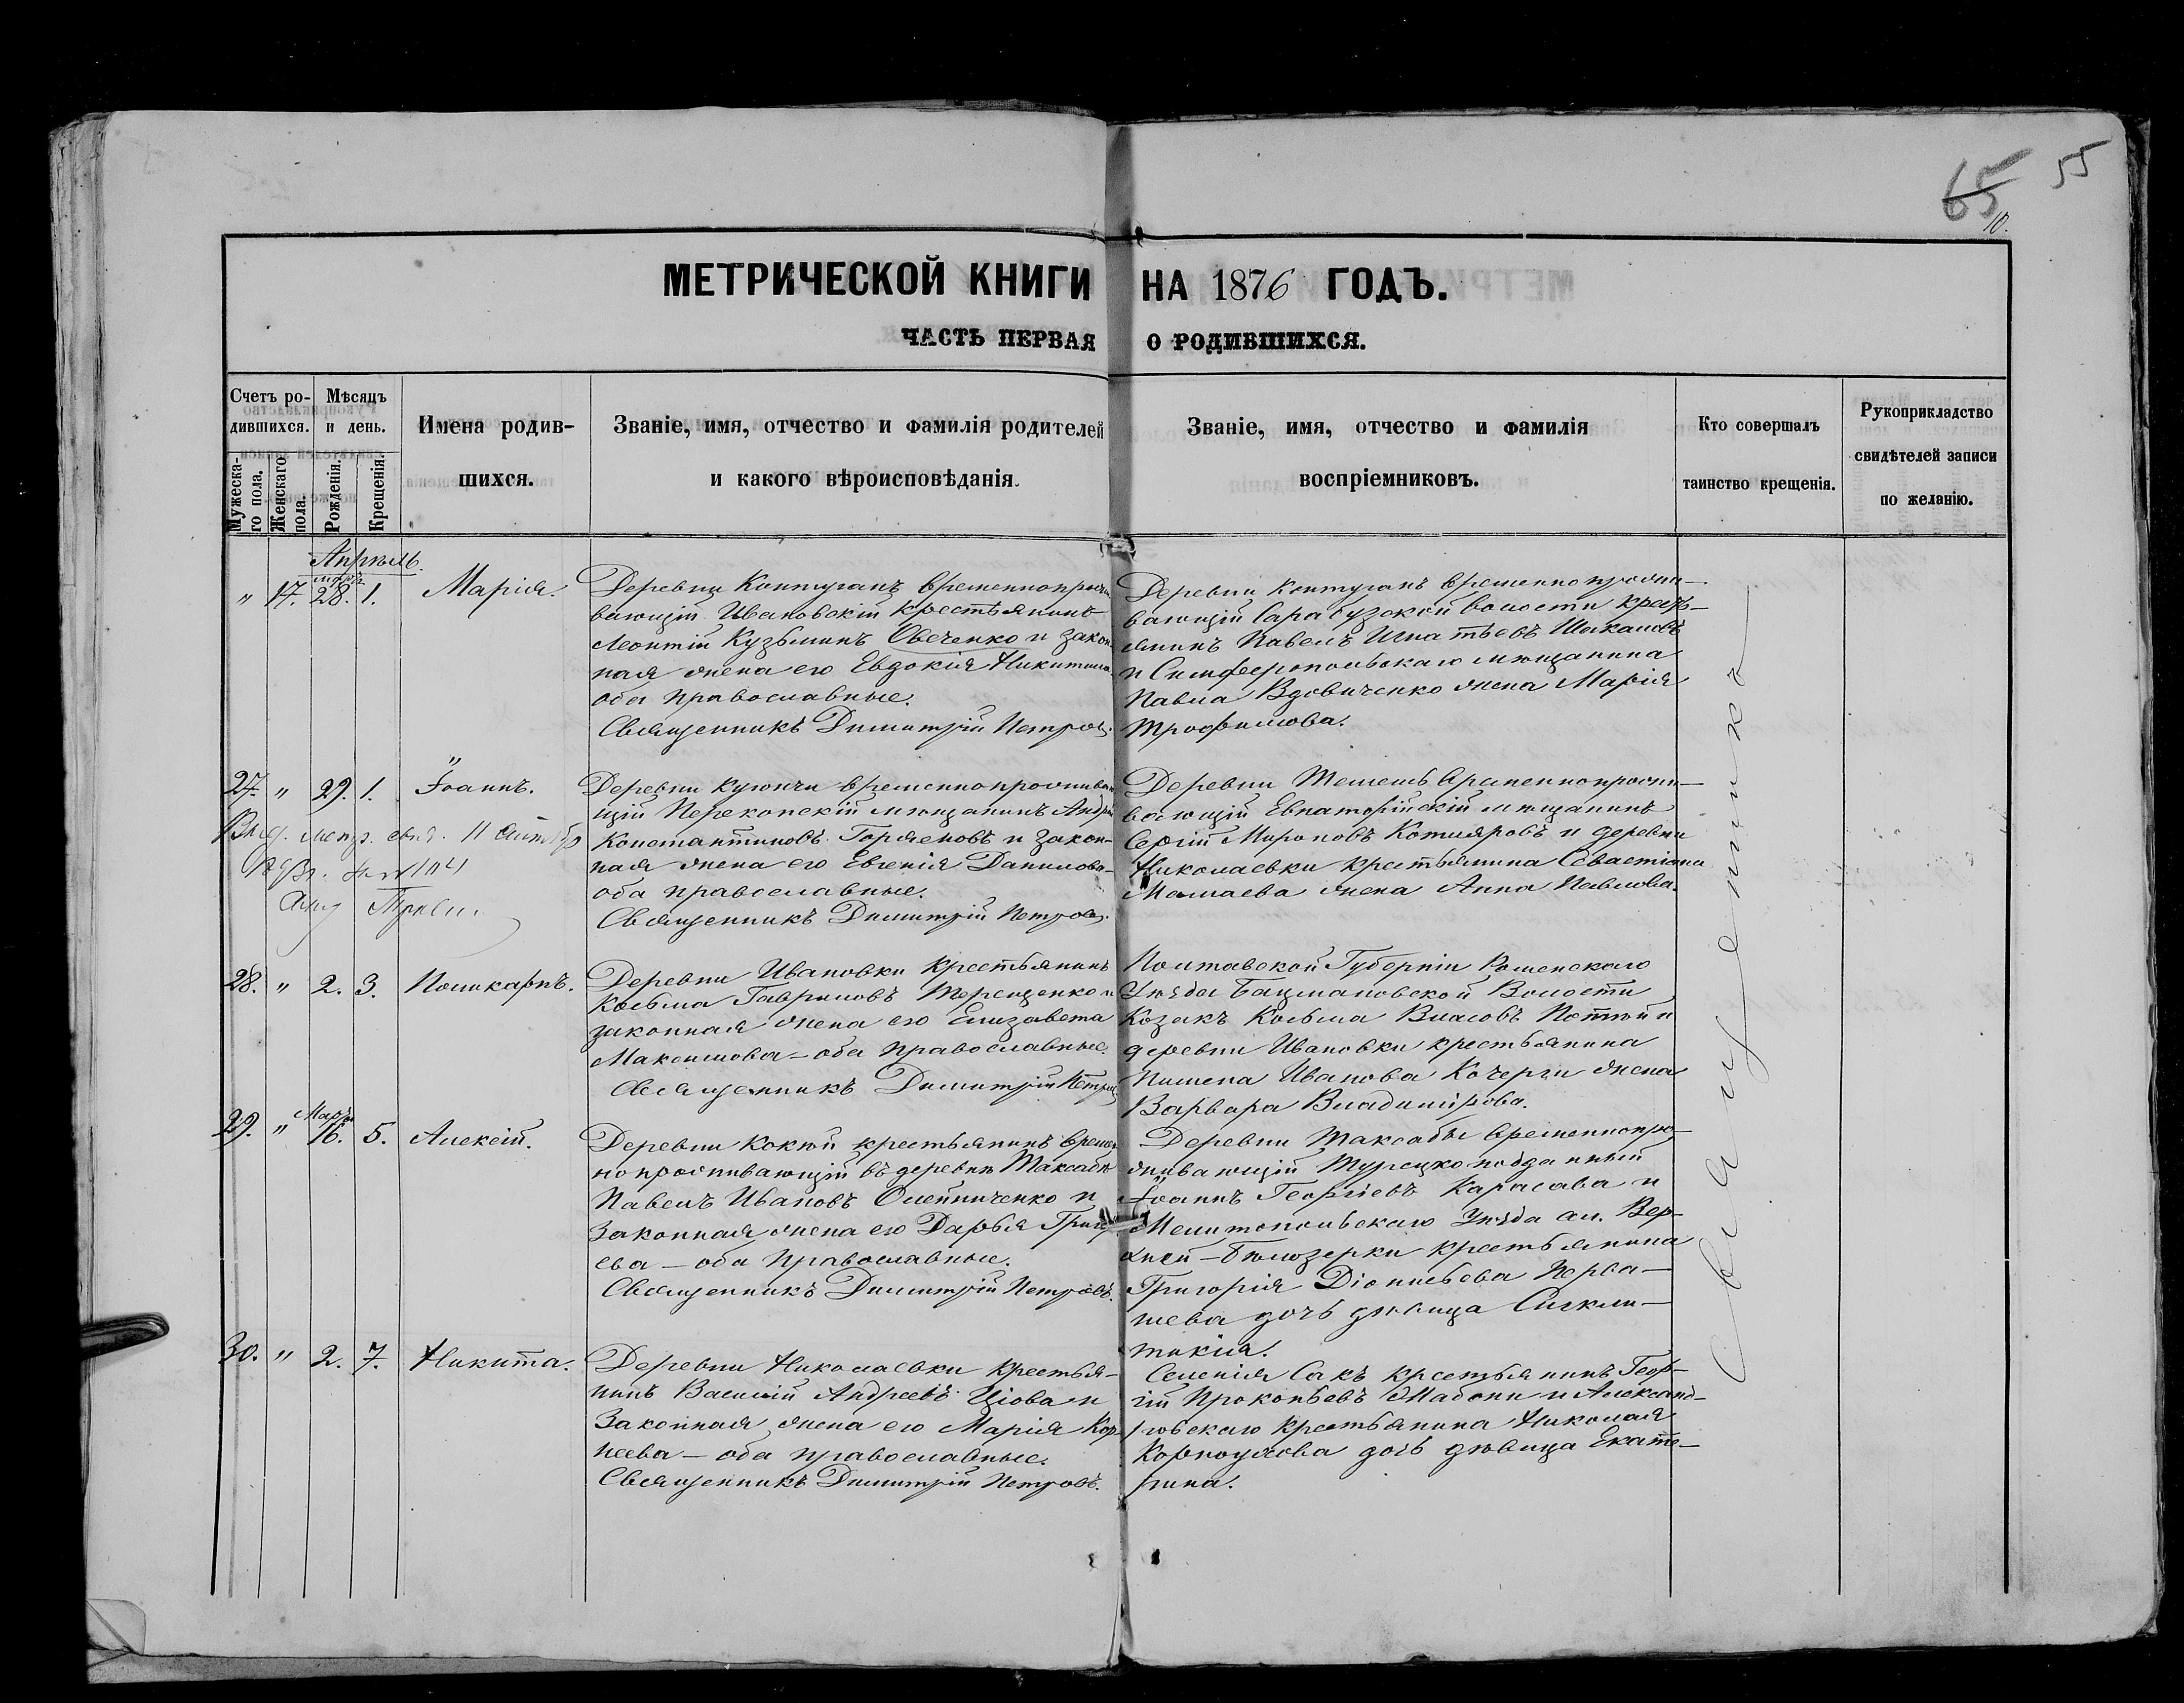 65 55
10.
МЕТРИЧЕСКОЙ КНИГИ НА 1876 ГОДЪ.
ЧАСТЬ ПЕРВАЯ О РОДИВШИХСЯ.
Счетъ ро-
дившихся.
Мужеска-
го пола.
Женскаго
пола.
Мѣсяцъ
и день.
Рожденія.
Крещенія.
Имена родив-
шихся.
Званіе, имя, отчество и фамилія родителей
и какого вѣроисповѣданія.
Званіе, имя, отчество и фамилія
воспріемниковъ.
Кто совершалъ
таинство крещенія.
Рукоприкладство
свидѣтелей записи
по желанію.
Апрѣль.
" 17. 28. 1. Марія.
Деревни Контуганъ временнопрожи
вающій Ивановскій крестьянинъ
Леонтій Кузьминъ Овеченко и закон
ная жена его Евдокія Никитина
оба православные.
Священникъ Димитрій Петровъ.
Деревни Контуганъ временнопрожи-
вающій Сарабузской волости кресть-
янинъ Павелъ Игнатьевъ
и Симферопольскаго мѣщанина
Павла Вдовиченко жена Марія
Трофимова.
27. " 29. 1. Іоаннъ.
11
Деревни временнопроживаю
щій Перекопскій мѣщанинъ Андрей
Константиновъ и закон-
ная жена его Евгенія Данилова-
оба православные.
Священникъ Димитрій Петровъ.
Деревни временнопрожи-
вающій Евпаторійскій мѣщанинъ
Сергій Мироновъ Котляровъ и деревни
Николаевки крестьянина Севастіана
Мамаева жена Анна Павлова.
28. " 2. 3. Поликарпъ.
Деревни Ивановки крестьянинъ
Косьма Гавриловъ Терещенко и
законная жена его Елизавета
Максимова - оба православные.
Священникъ Димитрій Петровъ
Полтавской Губерніи Роменскаго
Уѣзда Бацмановской Волости
Козакъ Косьма Власовъ и
деревни Ивановки крестьянина
Пимена Иванова Кочерги жена
Варвара Владимірова.
29. " Марта 16. 5. Алексій.
Деревни крестьянинъ времен
нопроживающій въ деревнѣ Таксабѣ
Павелъ Ивановъ Олейниченко и
законная жена его Дарья Григорь
ева - оба православные.
Священникъ Димитрій Петровъ.
Деревни Таксабы временнопро
живающій Турецкоподданный
Іоаннъ Георгіевъ Карасава и
Мелитопольскаго Уѣзда сл. Вер-
хней-Бѣлозерки крестьянина
Григорія Діонисьева Перва-
шева дочь дѣвица Сигкли-
тикія.
30. " 2. 7. Никита.
Деревни Николаевки крестья-
нинъ Василій Андреевъ и
законная жена его Марія Кор-
неева - оба православные.
Священникъ Димитрій Петровъ.
Селенія Сакъ крестьянинъ Геор-
гій Прокопьевъ и Александ-
ровскаго крестьянина Николая
Корноухова дочь дѣвица Екате-
рина.
Священникъ